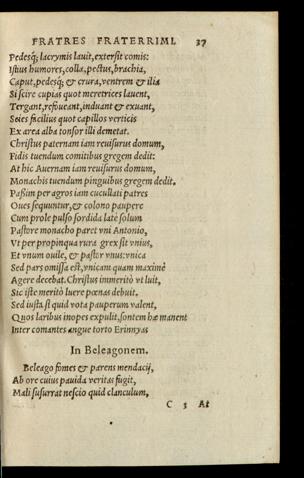 FRATRES FRATERRIMI. 37
Pedesq; lacrymis lauit, extersit comis:
Istus humores, colla, pectus, brachia,
Caput, pedesq; & crura, ventrem & ilia
Si scire cupias quot meretrices lauent,
Tergant, refoueant, induant & exuant,
Scies facilius quot capillos verticis
Ex area alba tonsor illi demetat.
Christus paternam iam reuisurus domum,
Fidis tuendum comitibus gregem dedit:
At hic Auernam iam reuisurus domum,
Monachis tuendum pinguibus gregem dedit.
Passim per agros iam cucullati patres
Oues sequuntur, & colono paupere
Cum prole pulso sordida late solum
Pastore monacho paret vni Antonio,
Vt per propinqua rura grex sit vnius,
Et vnum ouile, & pastor vnus: vnica
Sed pars omissa est, vnicam quam maximè
Agere decebat. Christus immeritò vt luit,
Sic iste meritò luere pœnas debuit.
Sed iusta si quid vota pauperum valent,
Quos laribus inopes expulit, sontem hæ manent
Inter comantes angue torto Erinnyas
In Beleagonem.
Beleago fomes & parens mendacij,
Ab ore cuius pauida veritas fugit,
Mali susurrat nescio quid clanculum,
C 3 At